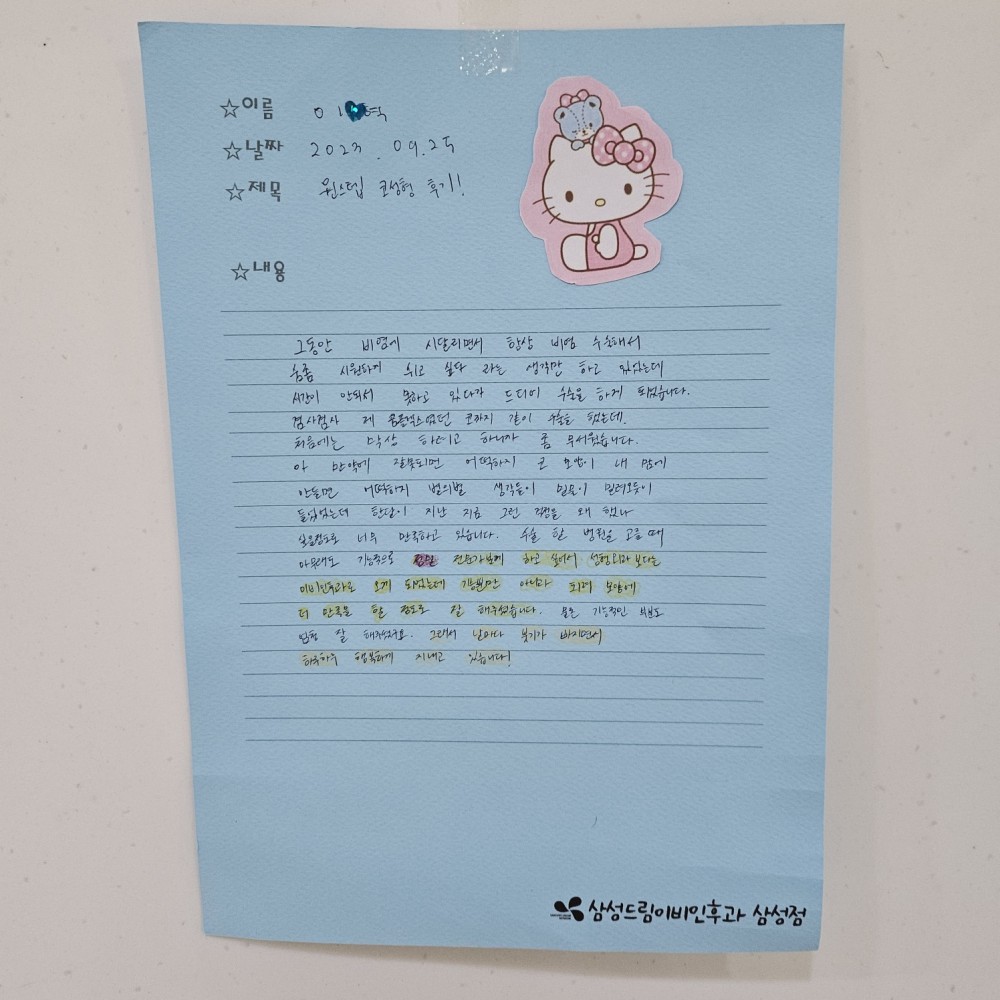 ☆이름 이 역
☆날짜 2023. 09.25
☆제목 원스텝 코성형 후기!
☆내용
그동안 비염에 시달리면서 항상 비염 수술해서
숨좀 시원하게 쉬고 싶다 라는 생각만 하고 있었는데
시간이 안되서 못하고 있다가 드디어 수술을 하게 되었습니다.
겸사겸사 제 콤플렉스였던 코까지 같이 수술을 했는데.
처음에는 막상 하려고 하니까 좀 무서웠습니다.
아 만약에 잘못되면 어떡하지 코 모양이 내 맘에
안들면 어떡하지 별의별 생각들이 밀려오듯이
들었었는데 한달이 지난 지금 그런 걱정을 왜 했나
싶을정도로 너무 만족하고 있습니다. 수술 할 병원을 고를 때
아무래도 기능쪽으로 전문가분께 하고 싶어서 성형외과 보다는
이비인후과로 오게 되었는데 기능뿐만 아니라 외적 모양에
더 만족을 할 정도로 잘 해주셨습니다. 물론 기능적인 부분도
엄청 잘 해주셨구요. 그래서 날마다 붓기가 빠지면서
하루하루 행복하게 지내고 있습니다!
삼성드림이비인후과 삼성점